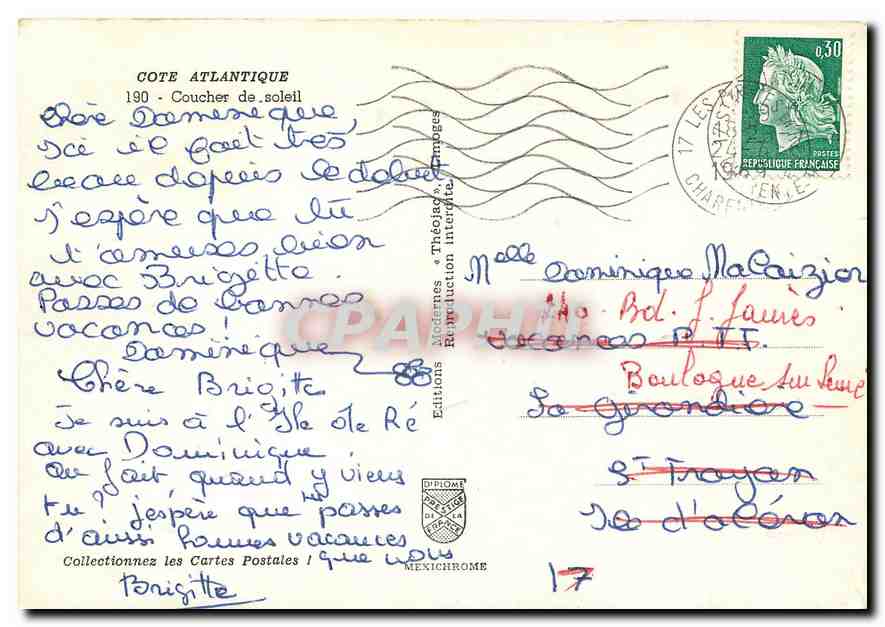 COTE ATLANTIQUE
190 - Coucher de soleil
Chère Dominique,
Ici il fait très
beau depuis le début
j'espère que tu
t'amuses bien
avec Brigitte.
Passes de bonnes
vacances!
Dominique
Chère Brigitte
Je suis à l'Ile de Ré
avec Dominique.
au fait quand y viens
tu? j'espère que tu passes
d'aussi bonnes vacances
que nous
Brigitte
Collectionnez les Cartes Postales !
Editions Modernes « Théojac », Limoges
Reproduction interdite.
DIPLOME
PRESTIGE
DE LA
FRANCE
MEXICHROME
0,30
POSTES
REPUBLIQUE FRANÇAISE
17 LES
CHARENTE
Melle Dominique Malaizier
Bd. J. Jaurès
Vacances P TT.
Boulogne sur Seine
La Girondière
St Trojan
Ile d'oléron
17
CPAPHIL